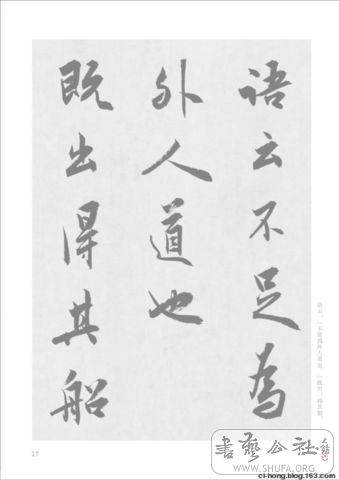 語云不足為
外人道也
既出得其船
語云:「不足爲外人道也。」既出,得其船,
17
書藝公社
WWW.SHUFA.ORG
cl-hong.blog.163.com